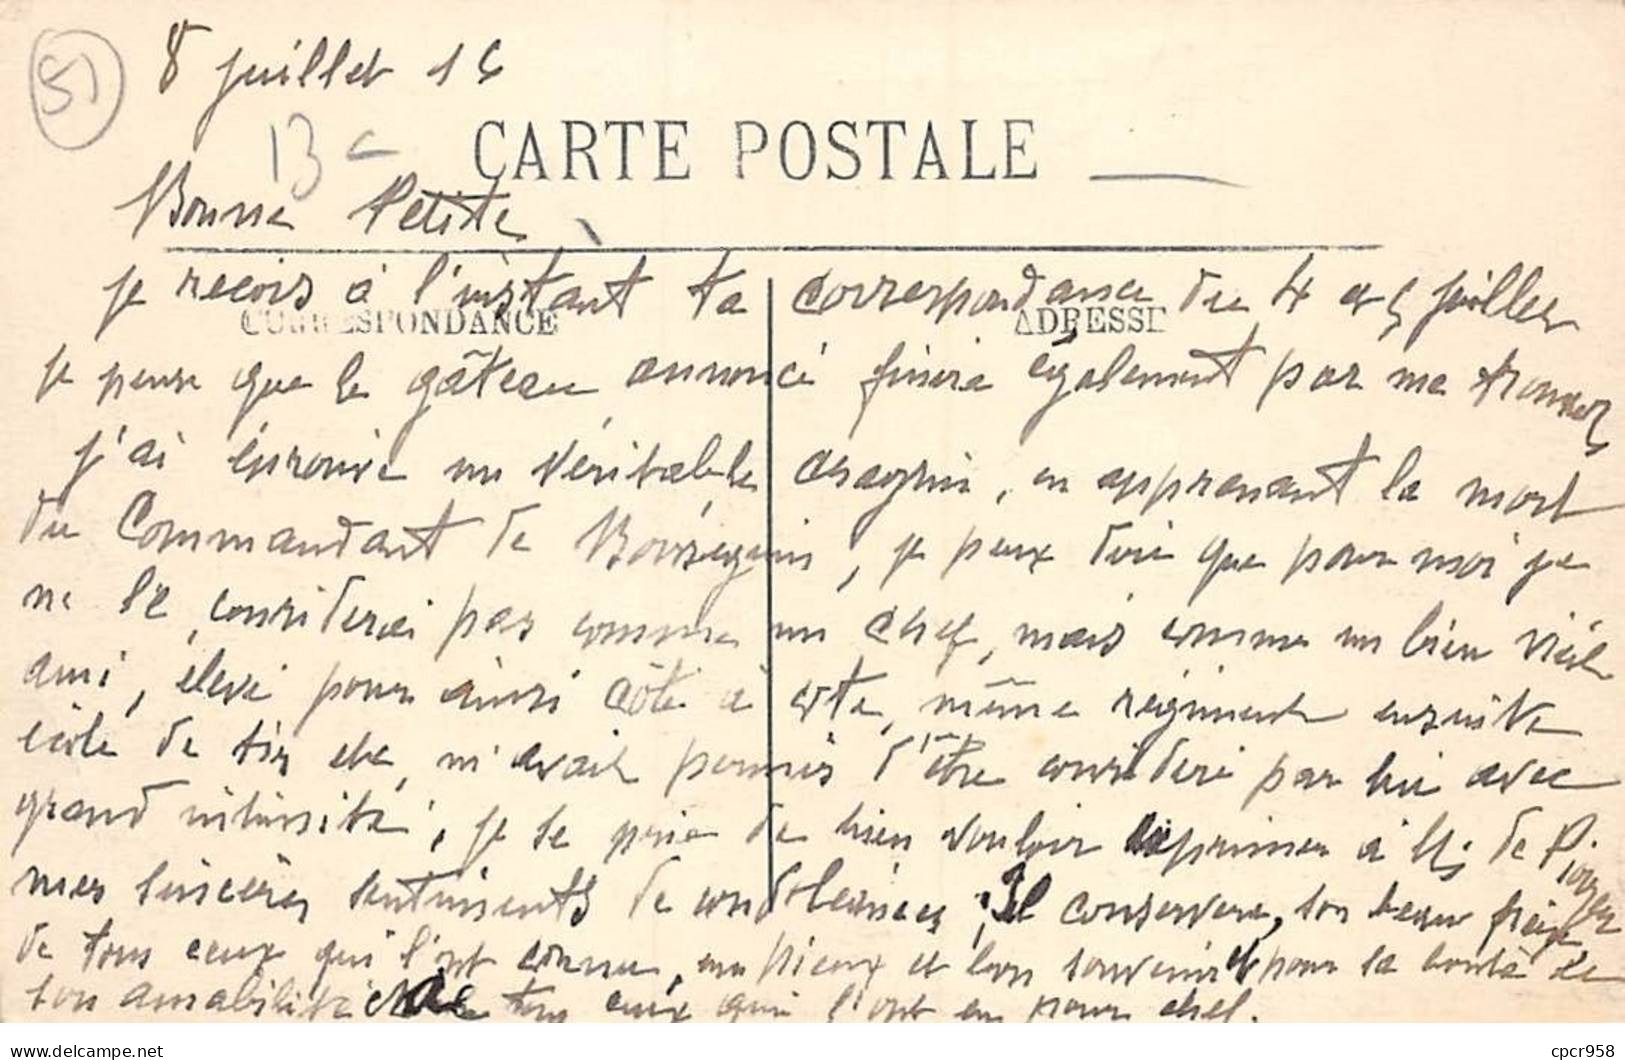 51
8 juillet 16
13 c
CARTE POSTALE
Bonne Petite
je reçois à l'instant ta correspondance du 4 et 5 juillet
CORRESPONDANCE
ADRESSE
je pense que le gâteau annoncé finira également par me trouver
j'ai éprouvé un véritable chagrin, en apprenant la mort
du Commandant de, je peux dire que pour moi je
ne le considerai pas comme un chef, mais comme un bien vieil
ami, élevé pour ainsi côte à côte, même régiment ensuite
école de tir etc, m'avait permis d'être considéré par lui avec
grand intimité, je te prie de bien vouloir exprimer à de
mes sincères sentiments de condoléances, Il conservera, son beau frère
de tous ceux qui l'ont connu, un pieux et bon souvenir pour sa bonté de
son amabilité tous ceux qui l'ont eu pour chef.
cpcr958